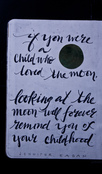 if you were
a child who
loved the moon
looking at the
moon will forever
remind you of
your childhood
JENNIFER EWBANK